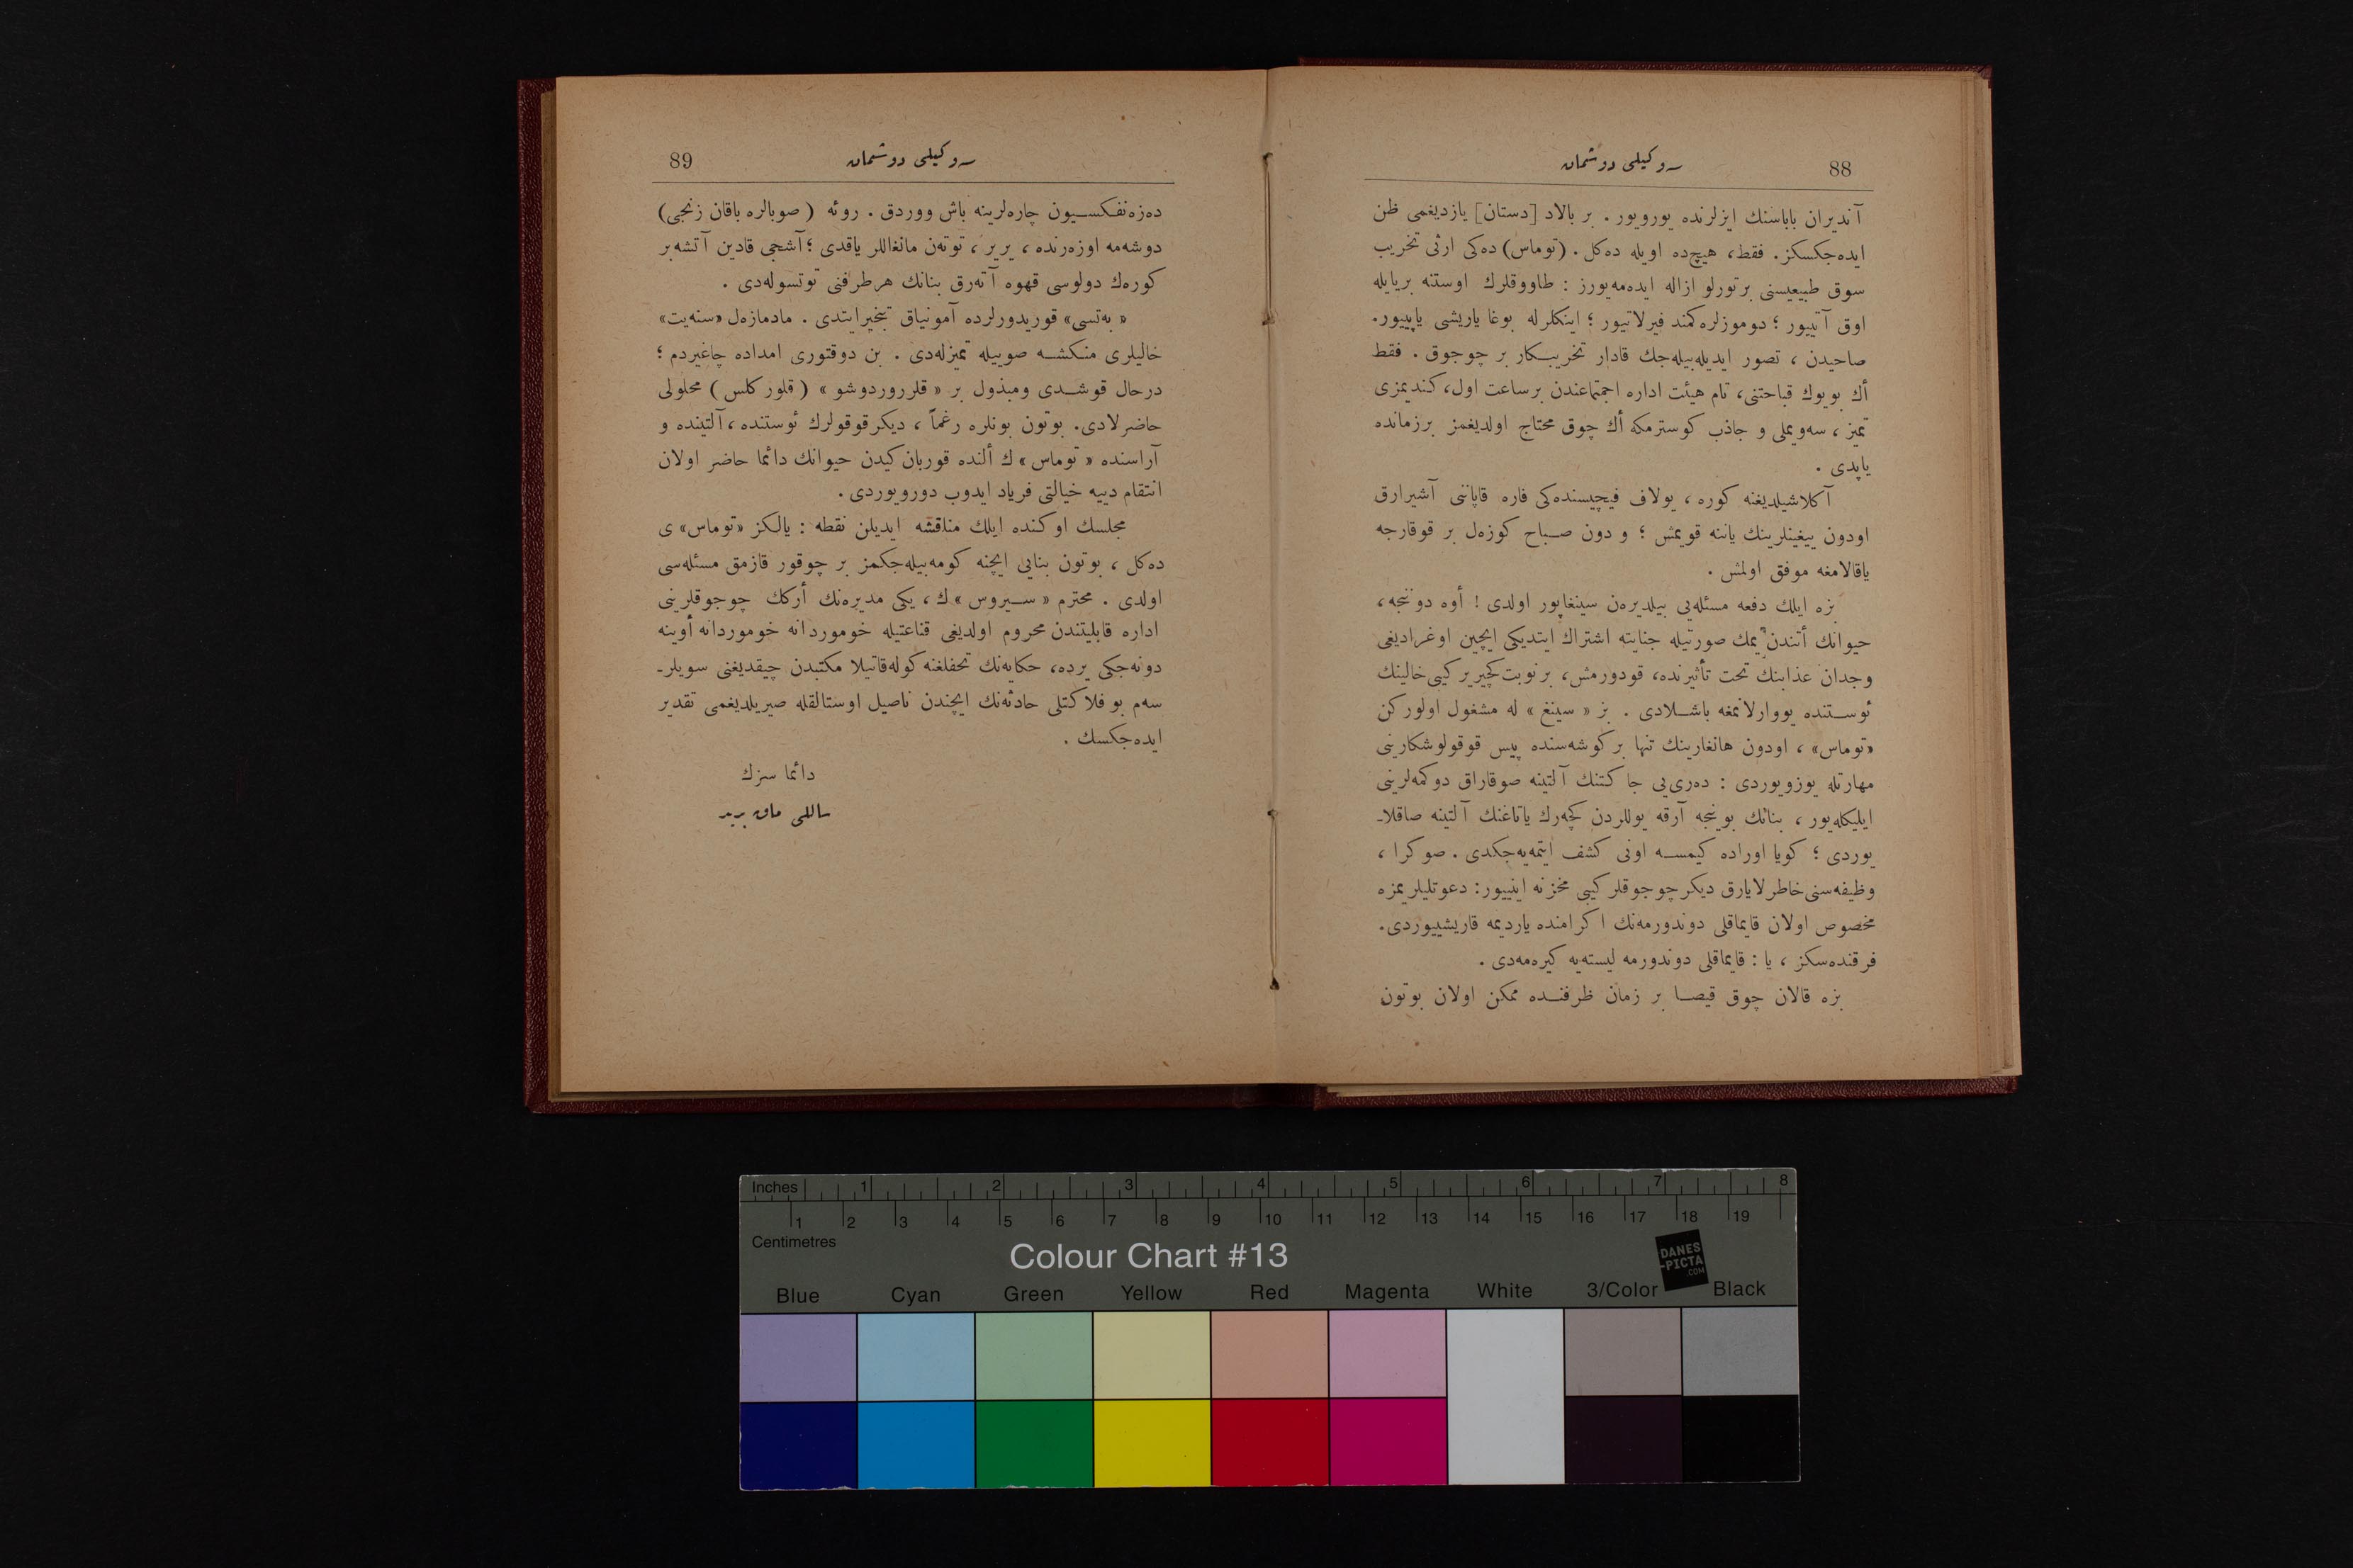 88
سوكیلی دوشمان
آندیران باباسنك ایزلرنده یورویور . بر بالاد [دستان] یازدیغمی ظن
ایده‌جكسكز . فقط، هیچ‌ده اویله ده‌كل . (توماس) ده‌كی ارثی تخریب
سوق طبیعیسنی برتورلو ازاله ایده‌مه‌یورز : طاووقلرك اوستنه بریایله
اوق آتییور ؛ دوموزلره كمند فیرلاتیور ؛ اینكلرله بوغا یاریشی یاپییور.
صاحیدن ، تصور ایدیله‌بیله‌جك قادار تخریبكار بر چوجوق . فقط
أك بویوك قباحتنی، تام هیئت اداره اجتماعندن برساعت اول، كندیمزی
تمیز ، سه‌ویملی و جاذب كوسترمكه أك چوق محتاج اولدیغمز برزمانده
یاپدی .
آكلاشیلدیغنه كوره ، یولاف فیچیسنده‌كی فاره قاپاننی آشیرارق
اودون ییغینلرینك یاننه قویمش ؛ و دون صباح كوزه‌ل بر قوقارجه
یاقالامغه موفق اولمش .
بزه ایلك دفعه مسئله‌یی بیلدیره‌ن سینغاپور اولدی ! أوه دوننجه،
حیوانك أتندن یمك صورتیله جنایته اشتراك ایتدیكی ایچین اوغرادیغی
وجدان عذابنك تحت تأثیرنده، قودورمش، بر نوبت كچیریر كیبی خالینك
ئوستنده یووارلانمغه باشلادی . بز « سینغ » له مشغول اولوركن
«توماس» ، اودون هانغارینك تنها بر كوشه‌سنده پیس قوقولو شكارینی
مهارتله یوزویوردی : ده‌ری‌یی جاكتنك آلتینه صوقاراق دوكمه‌لرینی
ایلیكله‌یور ، بنانك بوینجه آرقه یوللردن كچه‌رك یاتاغنك آلتینه صاقلا-
یوردی ؛ كویا اوراده كیمسه اونی كشف ایتمه‌یه‌جكدی . صوكرا ،
وظیفه‌سنی خاطرلایارق دیكر چوجوقلر كیبی مخزنه اینییور: دعوتلیلریمزه
مخصوص اولان قایماقلی دوندورمه‌نك اكرامنده یاردیمه قاریشییوردی.
فرقنده‌سكز ، یا : قایماقلی دوندورمه لیسته‌یه كیره‌مه‌دی .
بزه قالان چوق قیصا بر زمان ظرفنده ممكن اولان بوتون
89
سوكیلی دوشمان
ده‌زه‌نفكسیون چاره‌لرینه باش ووردق . روئه (صوبالره باقان زنجی)
دوشه‌مه اوزه‌رنده ، یریر ، توته‌ن مانغاللر یاقدی ؛ آشجی قادین آتشه بر
كوره‌ك دولوسی قهوه آته‌رق بنانك هرطرفنی توتسوله‌دی .
« به‌تسی» قوریدورلرده آمونیاق تبخیرایتدی . مادمازه‌ل «سنه‌یت»
خالیلری منكشه صوییله تمیزله‌دی . بن دوقتوری امداده چاغیردم ؛
درحال قوشدی ومبذول بر « قلرروردوشو » (قلور كلس) محلولی
حاضرلادی. بوتون بونلره رغماً ، دیكر قوقولرك ئوستنده ، آلتینده و
آراسنده « توماس »ك ألنده قوربان كیدن حیوانك دائما حاضر اولان
انتقام دییه خیالتی فریاد ایدوب دورویوردی .
مجلسك اوكنده ایلك مناقشه ایدیلن نقطه : یالكز «توماس»ی
ده‌كل ، بوتون بنایی ایچنه كومه‌بیله‌جكمز بر چوقور قازمق مسئله‌سی
اولدی . محترم « سیروس »ك ، یكی مدیره‌نك أركك چوجوقلرینی
اداره قابلیتندن محروم اولدیغی قناعتیله خوموردانه خوموردانه أوینه
دونه‌جكی یرده، حكایه‌نك تحفلغنه كوله قاتیلا مكتبدن چیقدیغنی سویلر-
سه‌م بو فلاكتلی حادثه‌نك ایچندن ناصیل اوستالقله صیریلدیغمی تقدیر
ایده‌جكسك .
دائما سزك
ساللی ماق برید
Inches 1 2 3 4 5 6 7 8
1 2 3 4 5 6 7 8 9 10 11 12 13 14 15 16 17 18 19
Centimetres
Colour Chart #13
DANES
-PICTA
.COM
Blue Cyan Green Yellow Red Magenta White 3/Color Black